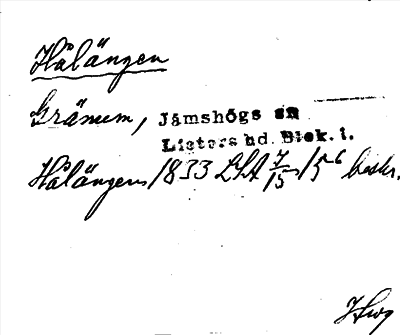 Hålängen
Gränum, Jämshögs sn
Listers hd. Blek. l.
Hålängen 1833 LSA 7/15 15⁶ beskr.